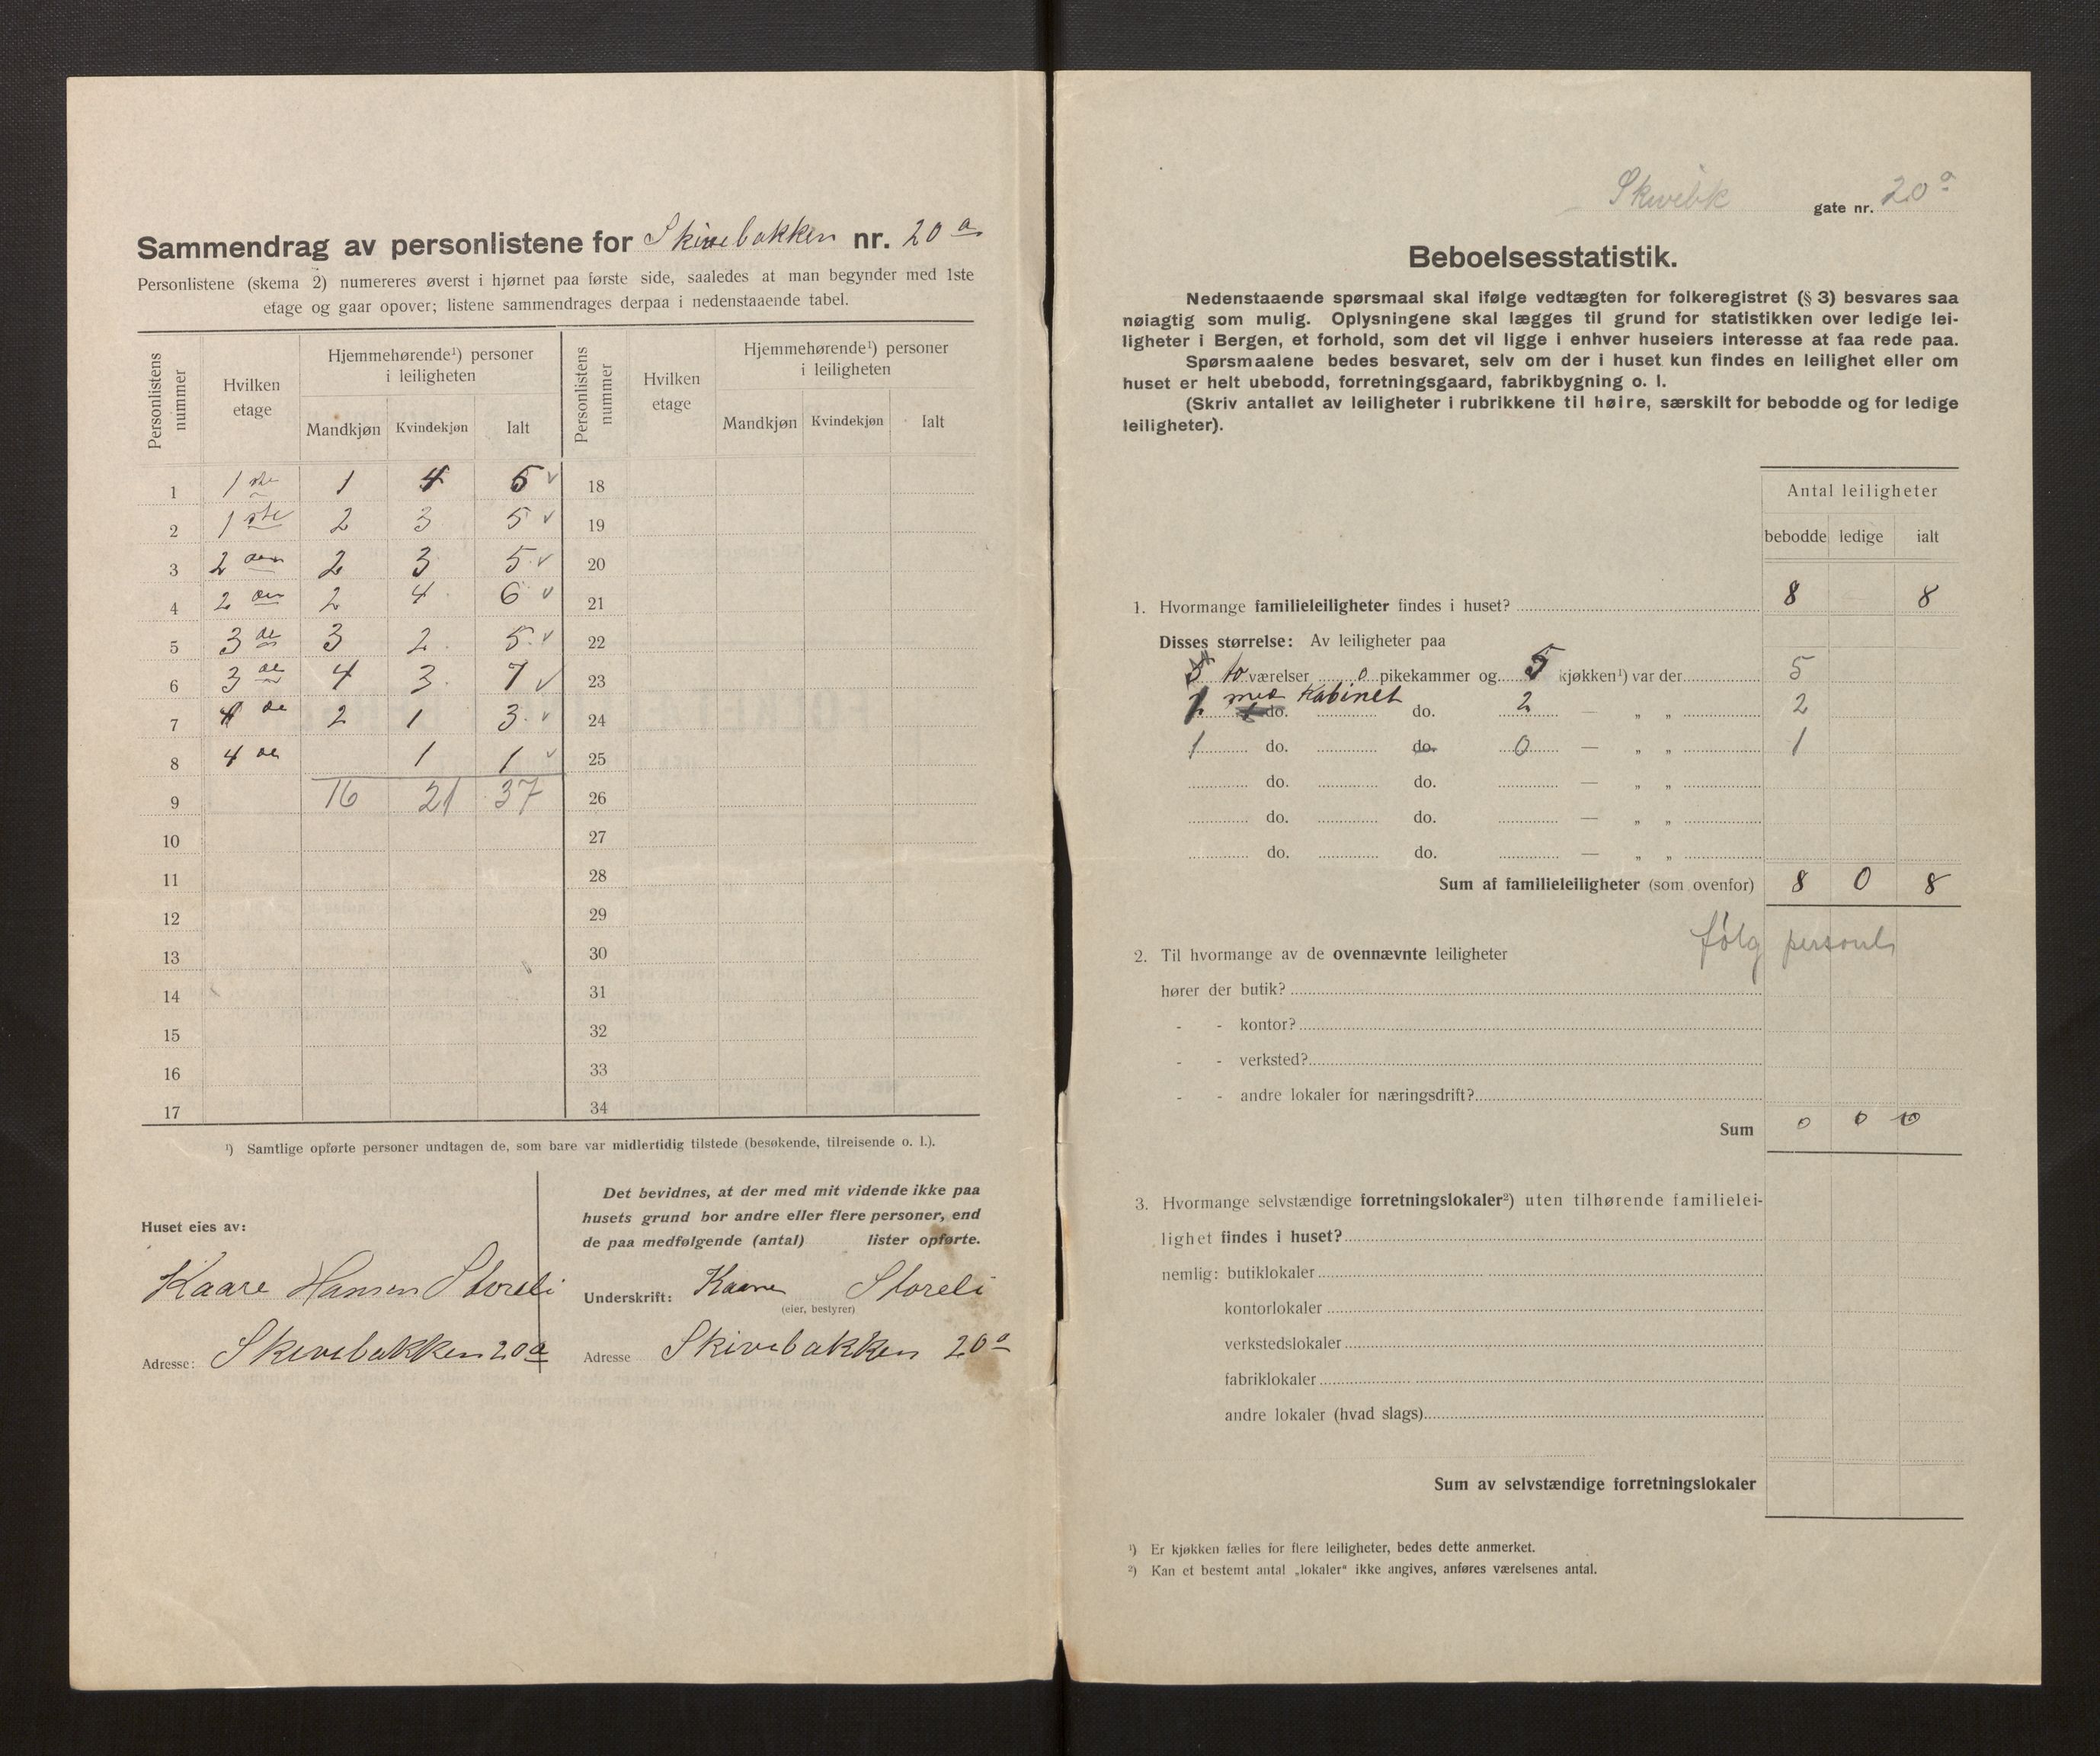 Sammendrag av personlistene for Skivebakken nr. 20 a
Personlistene (skema 2) numereres øverst i hjørnet paa første side, saaledes at man begynder med 1ste
etage og gaar opover; listene sammendrages derpaa i nedenstaaende tabel.
Personlistens nummer | Hvilken etage | Hjemmehørende¹) personer i leiligheten | Personlistens nummer | Hvilken etage | Hjemmehørende¹) personer i leiligheten
Mandkjøn | Kvindekjøn | Ialt | Mandkjøn | Kvindekjøn | Ialt
1 | 1 ste | 1 | 4 | 5 ✓ | 18
2 | 1 ste | 2 | 3 | 5 ✓ | 19
3 | 2 den | 2 | 3 | 5 ✓ | 20
4 | 2 den | 2 | 4 | 6 ✓ | 21
5 | 3 de | 3 | 2 | 5 ✓ | 22
6 | 3 de | 4 | 3 | 7 ✓ | 23
7 | 4 de | 2 | 1 | 3 ✓ | 24
8 | 4 de | | 1 | 1 ✓ | 25
9 | | 16 | 21 | 37 | 26
10 | 27
11 | 28
12 | 29
13 | 30
14 | 31
15 | 32
16 | 33
17 | 34
¹) Samtlige opførte personer undtagen de, som bare var midlertidig tilstede (besøkende, tilreisende o. l.).
Huset eies av:
Kaare Hansen Storeli
Adresse: Skivebakken 20a
Det bevidnes, at der med mit vidende ikke paa
husets grund bor andre eller flere personer, end
de paa medfølgende (antal) lister opførte.
Underskrift: Kaare Storeli
(eier, bestyrer)
Adresse Skivebakken 20 a
Skivebk gate nr. 20 a
Beboelsesstatistik.
Nedenstaaende spørsmaal skal ifølge vedtægten for folkeregistret (§ 3) besvares saa
nøiagtig som mulig. Oplysningene skal lægges til grund for statistikken over ledige lei-
ligheter i Bergen, et forhold, som det vil ligge i enhver huseiers interesse at faa rede paa.
Spørsmaalene bedes besvaret, selv om der i huset kun findes en leilighet eller om
huset er helt ubebodd, forretningsgaard, fabrikbygning o. l.
(Skriv antallet av leiligheter i rubrikkene til høire, særskilt for bebodde og for ledige
leiligheter).
Antal leiligheter
bebodde | ledige | ialt
1. Hvormange familieleiligheter findes i huset? 8 | | 8
Disses størrelse: Av leiligheter paa
5 to værelser 0 pikekammer og 5 kjøkken¹) var der 5
2 med Kabinet do. do. 2 — „ „ 2
1 do. do. 0 — „ „ 1
do. do. — „ „
do. do. — „ „
do. do. — „ „
Sum af familieleiligheter (som ovenfor) 8 | 0 | 8
følg personl
2. Til hvormange av de ovennævnte leiligheter
hører der butik?
- - kontor?
- - verksted?
- - andre lokaler for næringsdrift?
Sum 0 | 0 | 0
3. Hvormange selvstændige forretningslokaler²) uten tilhørende familielei-
lighet findes i huset?
nemlig: butiklokaler
kontorlokaler
verkstedslokaler
fabriklokaler
andre lokaler (hvad slags)
Sum av selvstændige forretningslokaler
¹) Er kjøkken fælles for flere leiligheter, bedes dette anmerket.
²) Kan et bestemt antal „lokaler“ ikke angives, anføres værelsenes antal.